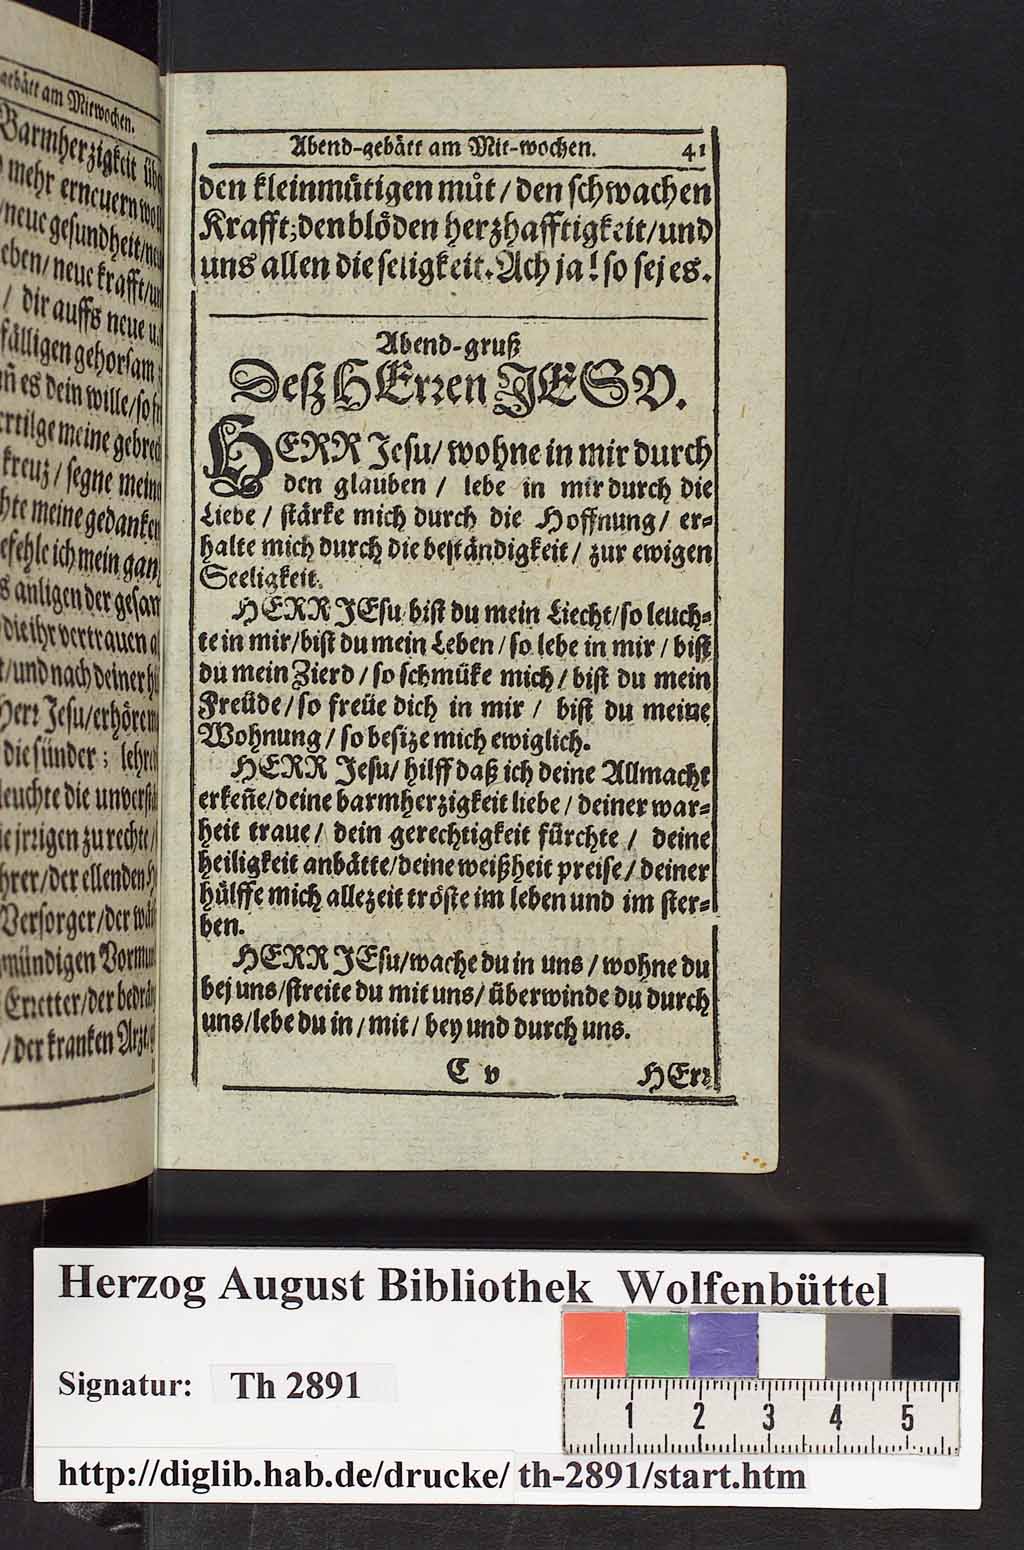 gebätt am Mitwochen.
Barmherzigkeit
mehr erneuern
neue gesundheit/
neue krafft/
/ dir auffs neue
gehorsam
es dein wille/so
meine
kreuz / segne
meine gedanken
ich mein
anligen der
die ihr vertrauen
/und nach deiner
Herr Jesu/erhöre
die sünder; lehre
die
irrigen zu rechte/
/der ellenden
Versorger/der
Erretter/der
/der kranken
Abend-gebätt am Mit-wochen. 41
den kleinmütigen mut / den schwachen
Krafft; den blöden herzhafftigkeit/und
uns allen die seligkeit. Ach ja! so sej es.
Abend-gruß
Deß HErren JESV.
HERR Jesu/ wohne in mir durch
den glauben / lebe in mir durch die
Liebe / stärke mich durch die Hoffnung/ er-
halte mich durch die beständigkeit / zur ewigen
Seeligkeit.
HERR JEsu/ bist du mein Liecht/so leuch-
te in mir/bist du mein Leben / so lebe in mir / bist
du mein Zierd / so schmüke mich / bist du mein
Freüde/so freüe dich in mir / bist du meine
Wohnung / so besize mich ewiglich.
HERR Jesu/ hilff daß ich deine Allmacht
erkeñe/deine barmherzigkeit liebe / deiner war-
heit traue / dein gerechtigkeit fürchte / deine
heiligkeit anbätte/deine weißheit preise / deiner
hülffe mich allezeit tröste im leben und im ster-
ben.
HERR JEsu/wache du in uns / wohne du
bej uns /streite du mit uns/ überwinde du durch
uns/lebe du in / mit / bey und durch uns.
C v HErr
Herzog August Bibliothek Wolfenbüttel
Signatur: Th 2891
1 2 3 4 5
http://diglib.hab.de/drucke/ th-2891/start.htm